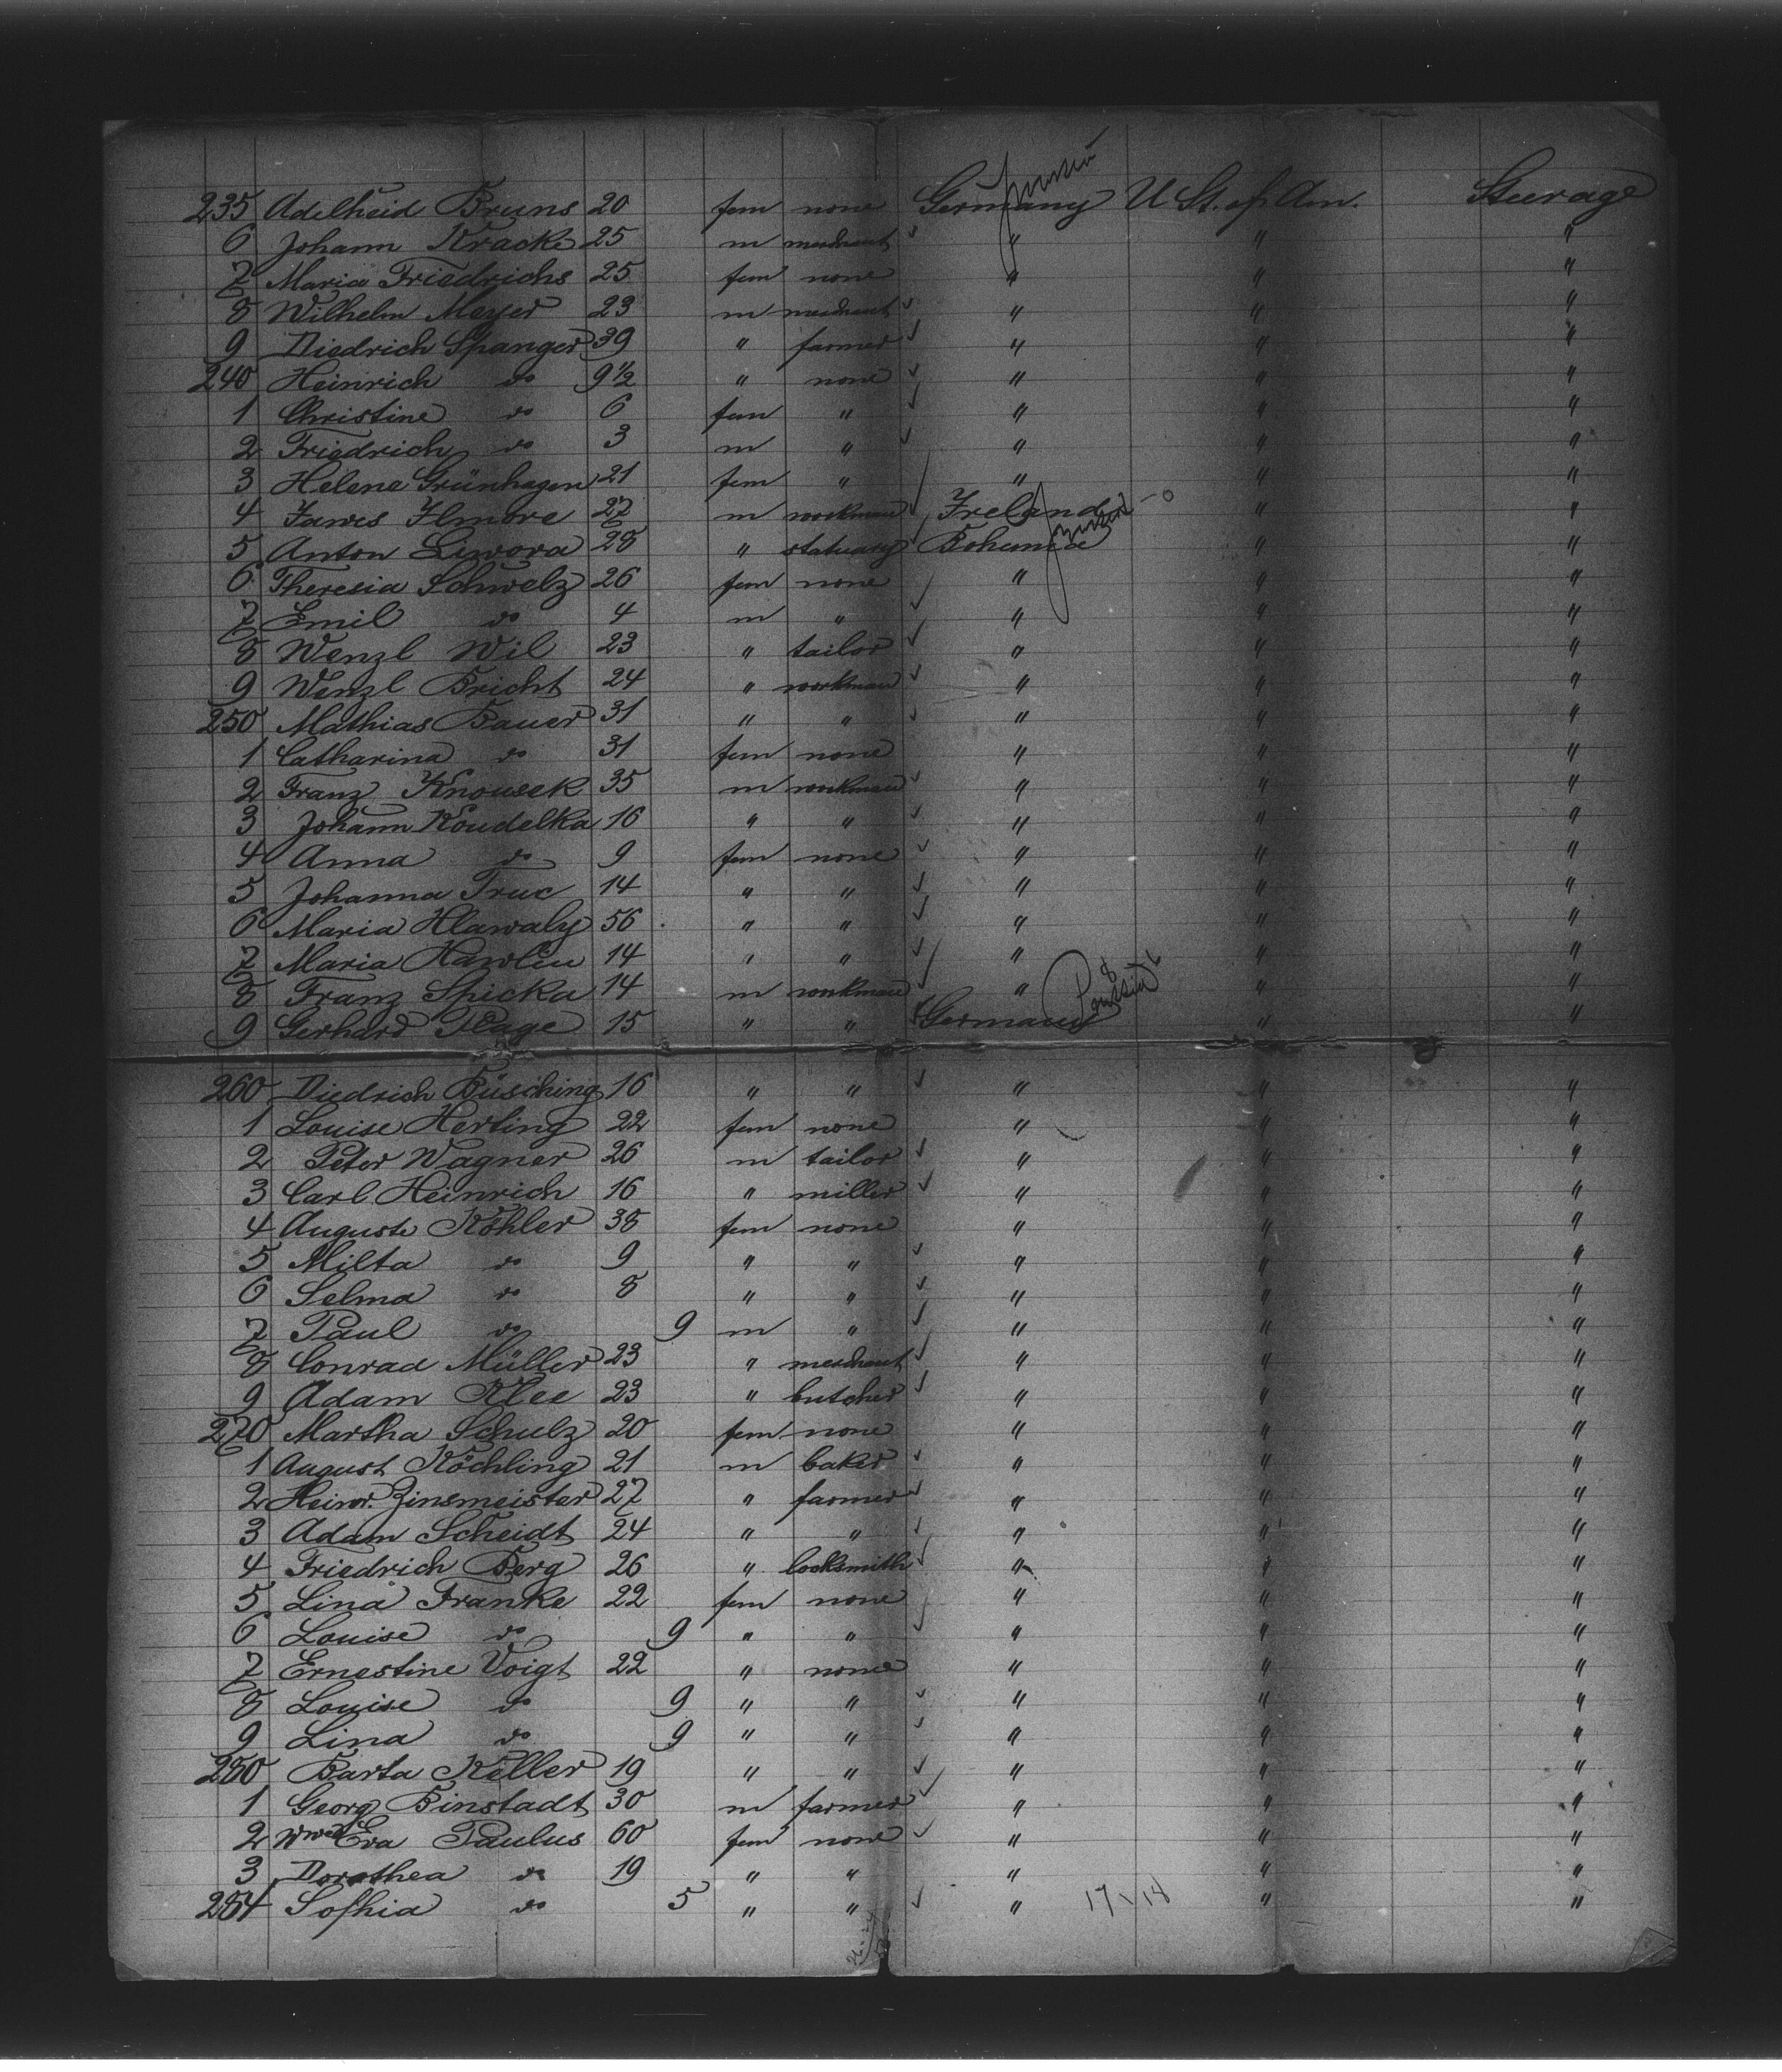 235 Adelheid Bruns 20 fem none Germany U St. of Am. Steerage
6 Johann Kracke 25 m merchant " " "
7 Maria Friedrichs 25 fem none " " "
8 Wilhelm Meyer 23 m merchant " " "
9 Diedrich Spanger 39 " farmer " " "
240 Heinrich do 9 1/2 " none " " "
1 Christine do 6 fem " " " "
2 Friedrich do 3 m " " " "
3 Helene Grünhagen 21 fem " " " "
4 James Ilmore 27 m workman Ireland " "
5 Anton Liwora 28 " statuary Bohemia " "
6 Theresia Schwelz 26 fem none " " "
7 Emil do 4 m " " " "
8 Wenzl Wil 23 " tailor " " "
9 Wenzl Bricht 24 " workman " " "
250 Mathias Bauer 31 " " " " "
1 Catharina do 31 fem none " " "
2 Franz Knousek 35 m workman " " "
3 Johann Koudelka 16 " " " " "
4 Anna do 9 fem none " " "
5 Johanna Truc 14 " " " " "
6 Maria Hlawaly 56 " " " " "
7 Maria Hawlin 14 " " " " "
8 Franz Spicka 14 m workman " " "
9 Gerhard Plage 15 " " Germany " "
260 Diedrich Büsching 16 " " " " "
1 Louise Herting 22 fem none " " "
2 Peter Wagner 26 m tailor " " "
3 Carl Heinrich 16 " miller " " "
4 Auguste Köhler 38 fem none " " "
5 Milta do 9 " " " " "
6 Selma do 8 " " " " "
7 Paul do 9 m " " " "
8 Conrad Müller 23 " merchant " " "
9 Adam Klee 23 " butcher " " "
270 Martha Schulz 20 fem none " " "
1 August Köchling 21 m baker " " "
2 Heinr. Zinsmeister 27 " farmer " " "
3 Adam Scheidt 24 " " " " "
4 Friedrich Berg 26 " locksmith " " "
5 Lina Franke 22 fem none " " "
6 Louise do 9 " " " " "
7 Ernestine Voigt 22 " none " " "
8 Louise do 9 " " " " "
9 Lina do 9 " " " " "
280 Barta Keller 19 " " " " "
1 Georg Binstadt 30 m farmer " " "
2 Wwe Eva Paulus 60 fem none " " "
3 Dorothea do 19 " " " " "
284 Sophia do 5 " " " 17 \ 18 " "